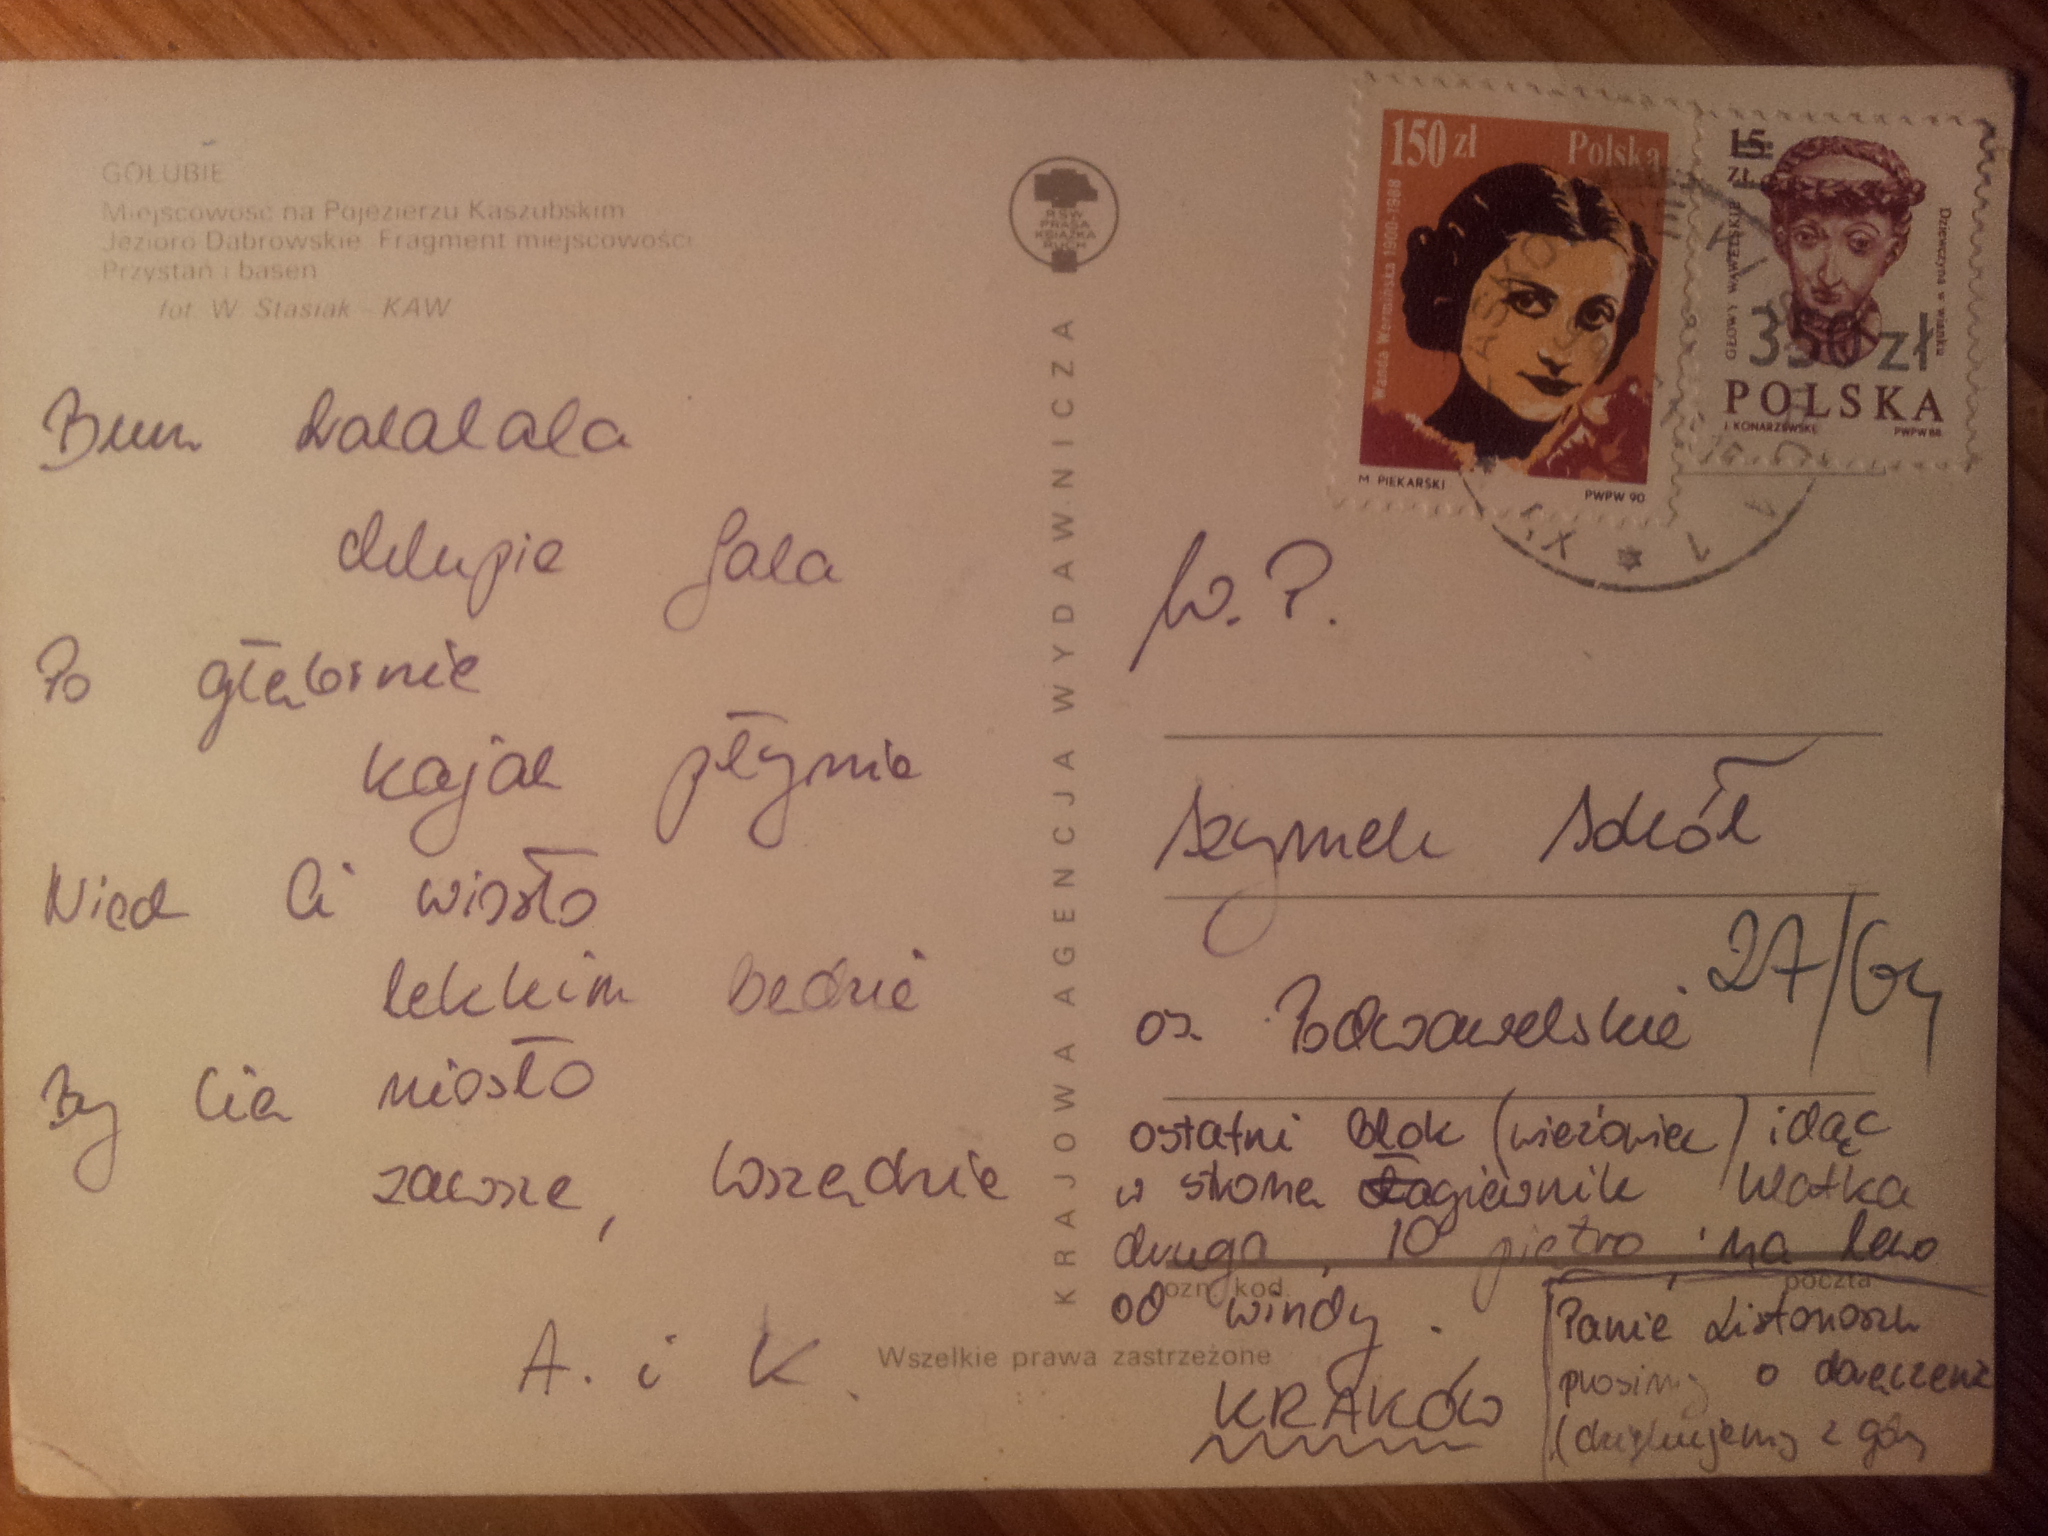 GOŁUBIE
Miejscowość na Pojezierzu Kaszubskim
Jezioro Dąbrowskie. Fragment miejscowości
Przystań i basen
fot. W. Stasiak - KAW
Bum tralalala
chlupie fala
Po głębinie
kajak płynie
Niech Ci wiosło
lekkim będzie
By Cię niosło
zawsze, wszędzie
A. i K.
KRAJOWA AGENCJA WYDAWNICZA
RSW
PRASA
KSIĄŻKA
RUCH
150 zł Polska
Wanda Werminska 1900-1988
M. PIEKARSKI PWPW 90
15 ZŁ
GŁOWY WAWELSKIE
Dziewczyna w wianku
350 zł
POLSKA
J. KONARZEWSKI PWPW 88
W. P.
Szymek Sokół
os. Podwawelskie 27/64
ostatni blok (wieżowiec) idąc
w stronę Łagiewnik klatka
druga, 10 piętro, na lewo
od windy.
ozn. kod. poczta
KRAKÓW
Panie Listonoszu
prosimy o doręczenie
(dziękujemy z góry
Wszelkie prawa zastrzeżone